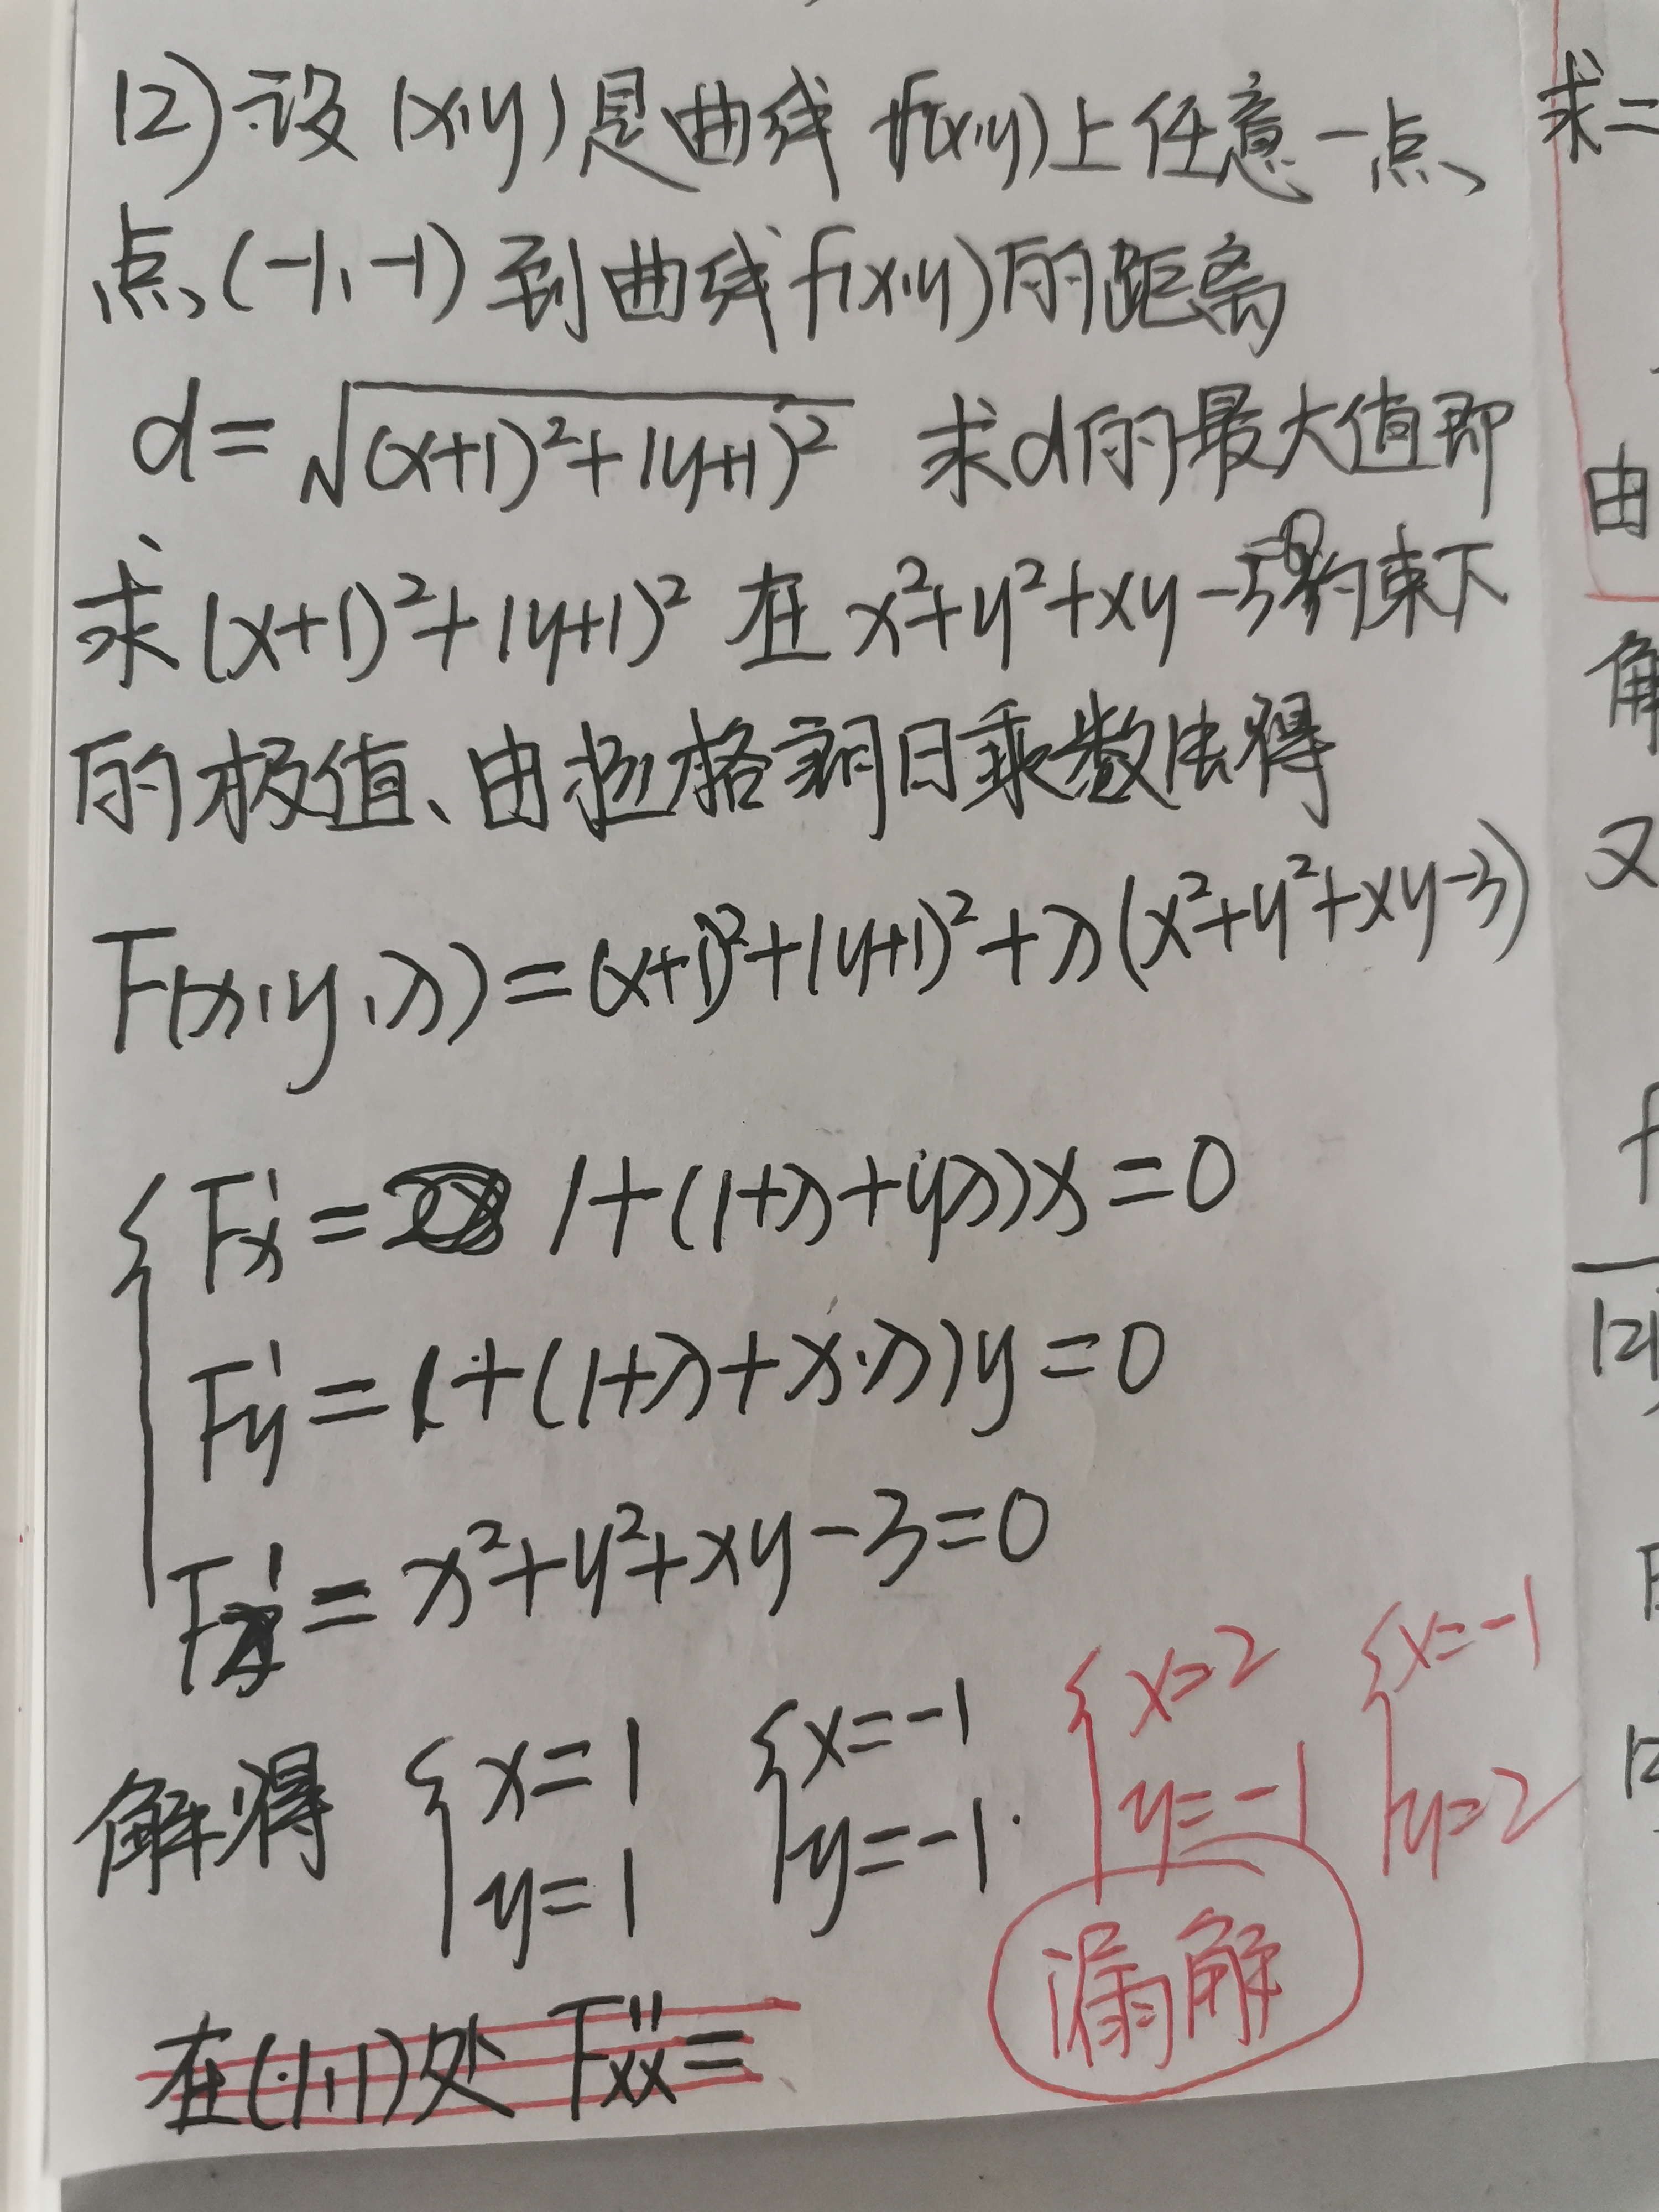 (2) 设 (x,y) 是曲线 f(x,y)上任意一点
点(-1,-1) 到曲线 f(x,y)的距离
d=√((x+1)²+(y+1)²) 求d的最大值即
求 (x+1)²+(y+1)² 在 x²+y²+xy-3 约束下
的极值、由拉格朗日乘数法得
F(x,y,λ)=(x+1)²+(y+1)²+λ(x²+y²+xy-3)
F'x= 1+(1+λ+yλ)x=0
F'y=1+(1+λ+x·λ)y=0
F'λ=x²+y²+xy-3=0
解得 {x=1 y=1 {x=-1 y=-1. {x=2 y=-1 {x=-1 y=2
漏解
在(1,1)处 F''xx=
求二
由
角
又
f
(2)